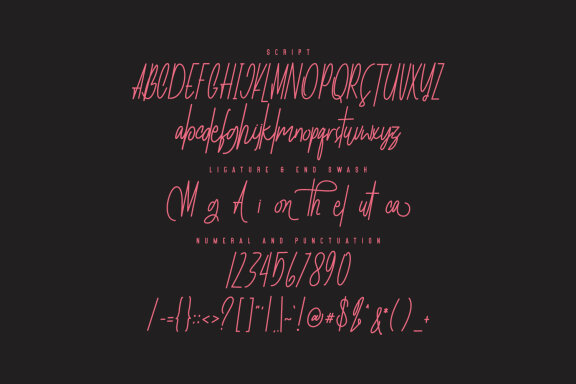 SCRIPT
ABCDEFGHIJKLMNOPQRSTUVXYZ
abcdefghijklmnopqrstuvwxyz
LIGATURE & END SWASH
M g A i on th el ut ca
NUMERAL AND PUNCTUATION
1234567890
/-={}:;<>?[]"'|,.|~`!@#$%^&*()_+